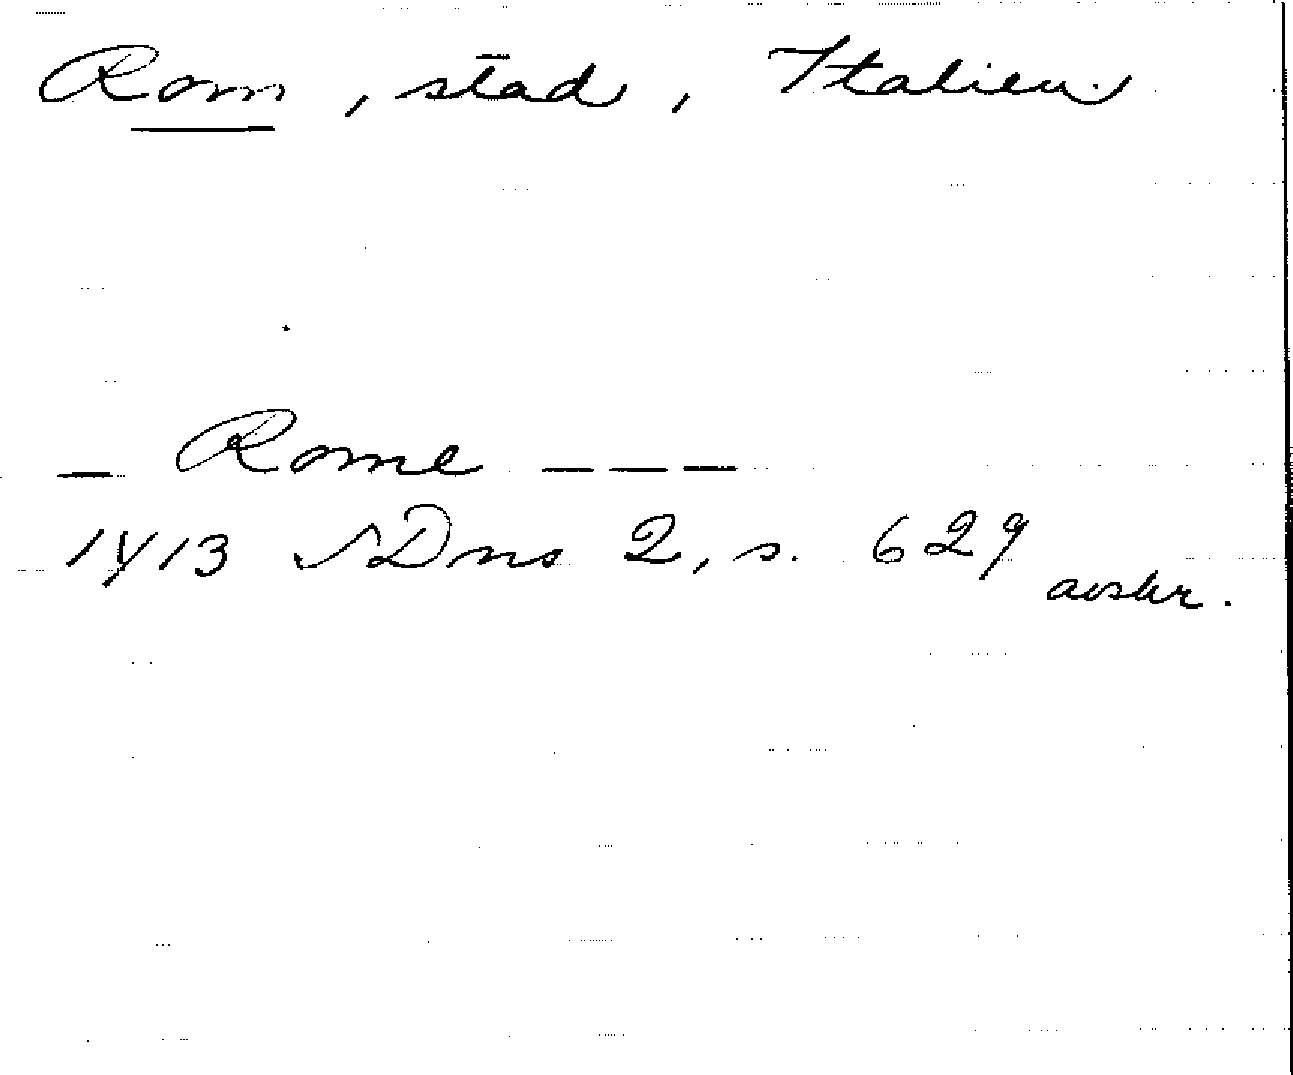 Rom, stad, Italien.
— Rome — — —
1413 SDns 2, s. 629 avskr.